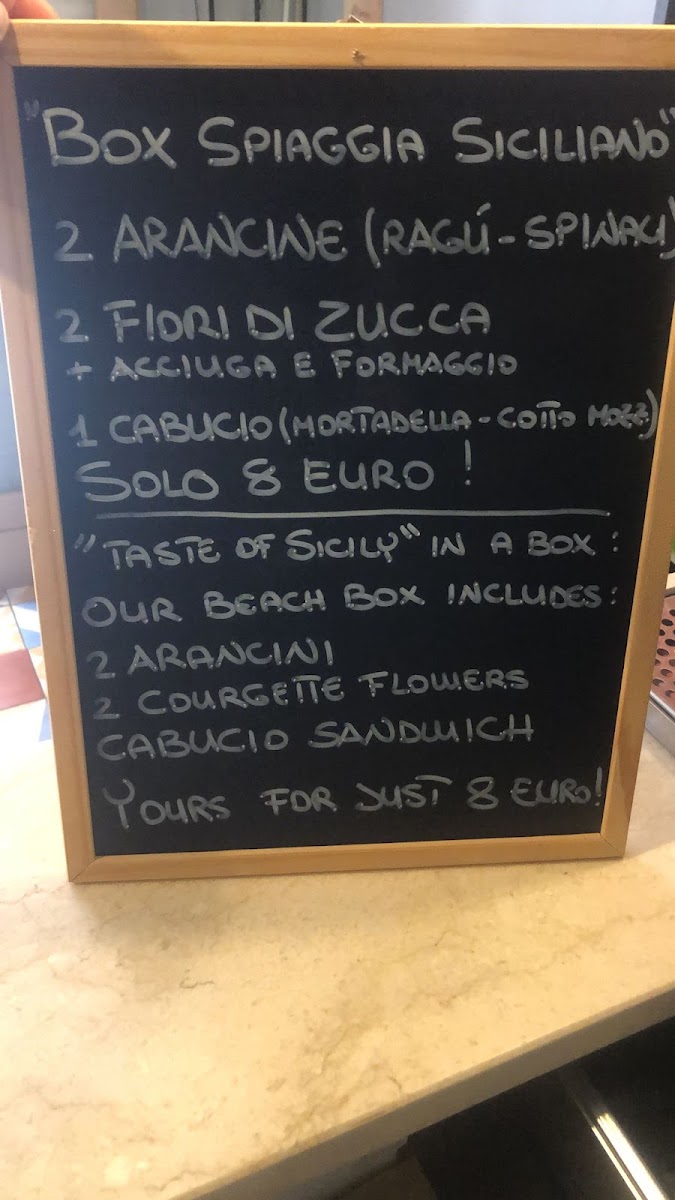 "BOX SPIAGGIA SICILIANO"
2 ARANCINE (RAGÚ - SPINACI)
2 FIORI DI ZUCCA
+ ACCIUGA E FORMAGGIO
1 CABUCIO (MORTADELLA - COTTO MOZZ)
SOLO 8 EURO!
"TASTE OF SICILY" IN A BOX:
OUR BEACH BOX INCLUDES:
2 ARANCINI
2 COURGETTE FLOWERS
CABUCIO SANDWICH
YOURS FOR JUST 8 EURO!